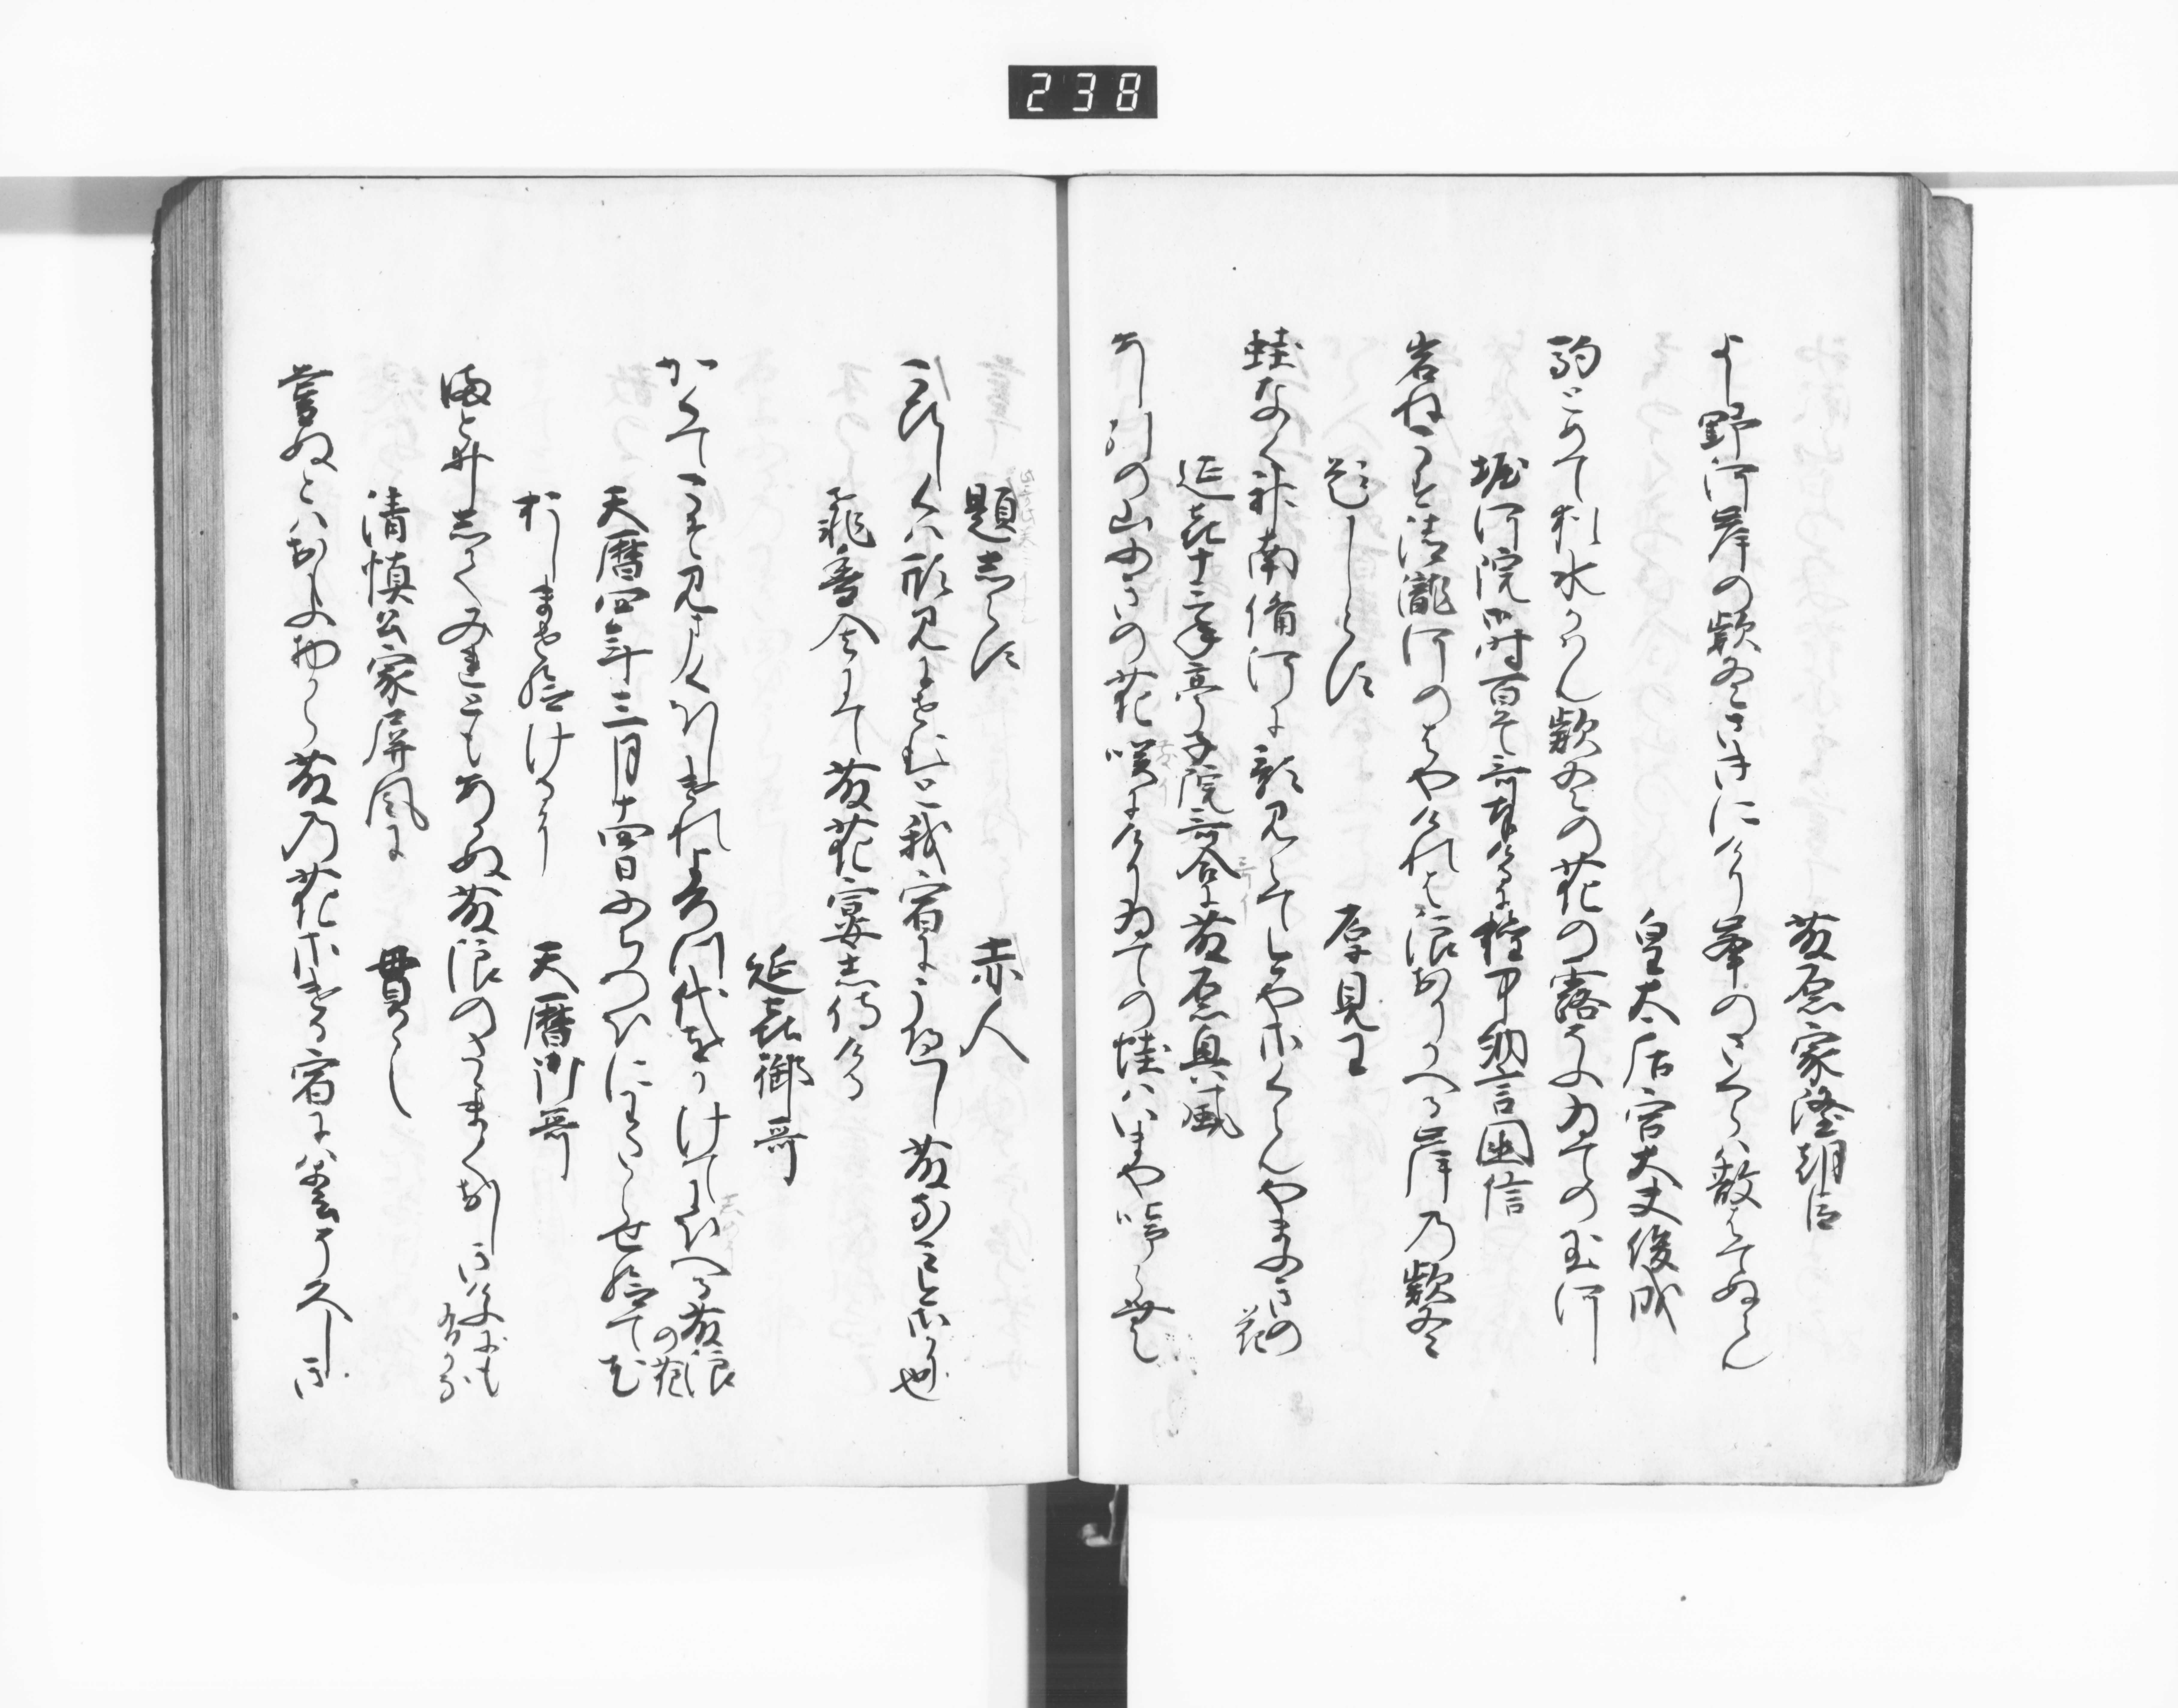 238
藤原家隆朝臣
よし野河岸の款冬さきにけり峯のさくらハ散はてぬらん
皇太后宮大夫俊成
駒とめて猶水かはん款冬の花の露そふ井ての玉河
堀河院御時百首哥奉ける時権中納言国信
岩ねこす清瀧河のはやけれは浪おりかへる岸乃款冬
題しらす　厚見王
蛙なく神南備河に影見えて今やさくらんやまふきの花
延喜十三年亭子院哥合に藤原興風
あし引の山ふきの花咲にけり井ての蛙ハいまや啼らむ
題志らす　赤人
こひしくハ形見にせむと我宿にうへし藤なみ今さかり也
飛香舎にて藤花宴志侍ける
延喜御哥
かくてこそ見まくほしけれ万代をかけてにほへる藤浪の花
天暦四年三月十四日ふちつほにわたらせ給て花
おしませ給けるに　天暦御哥
まと井してみれともあかぬ藤浪のたゝまくおしきけふにも有かな
清慎公家屏風に　貫之
暮ぬとハおもふ物から藤乃花さける宿にハ春そ久しき